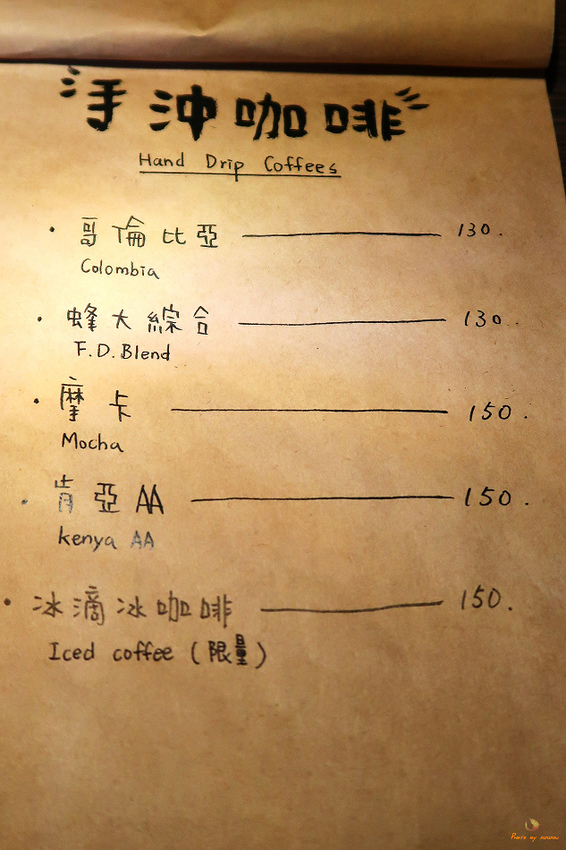 手沖咖啡
Hand Drip Coffees
· 哥倫比亞 130.
Colombia
· 蜂大綜合 130.
F.D. Blend
· 摩卡 150.
Mocha
· 肯亞AA 150.
kenya AA
· 冰滴冰咖啡 150.
Iced coffee (限量)
Photo by